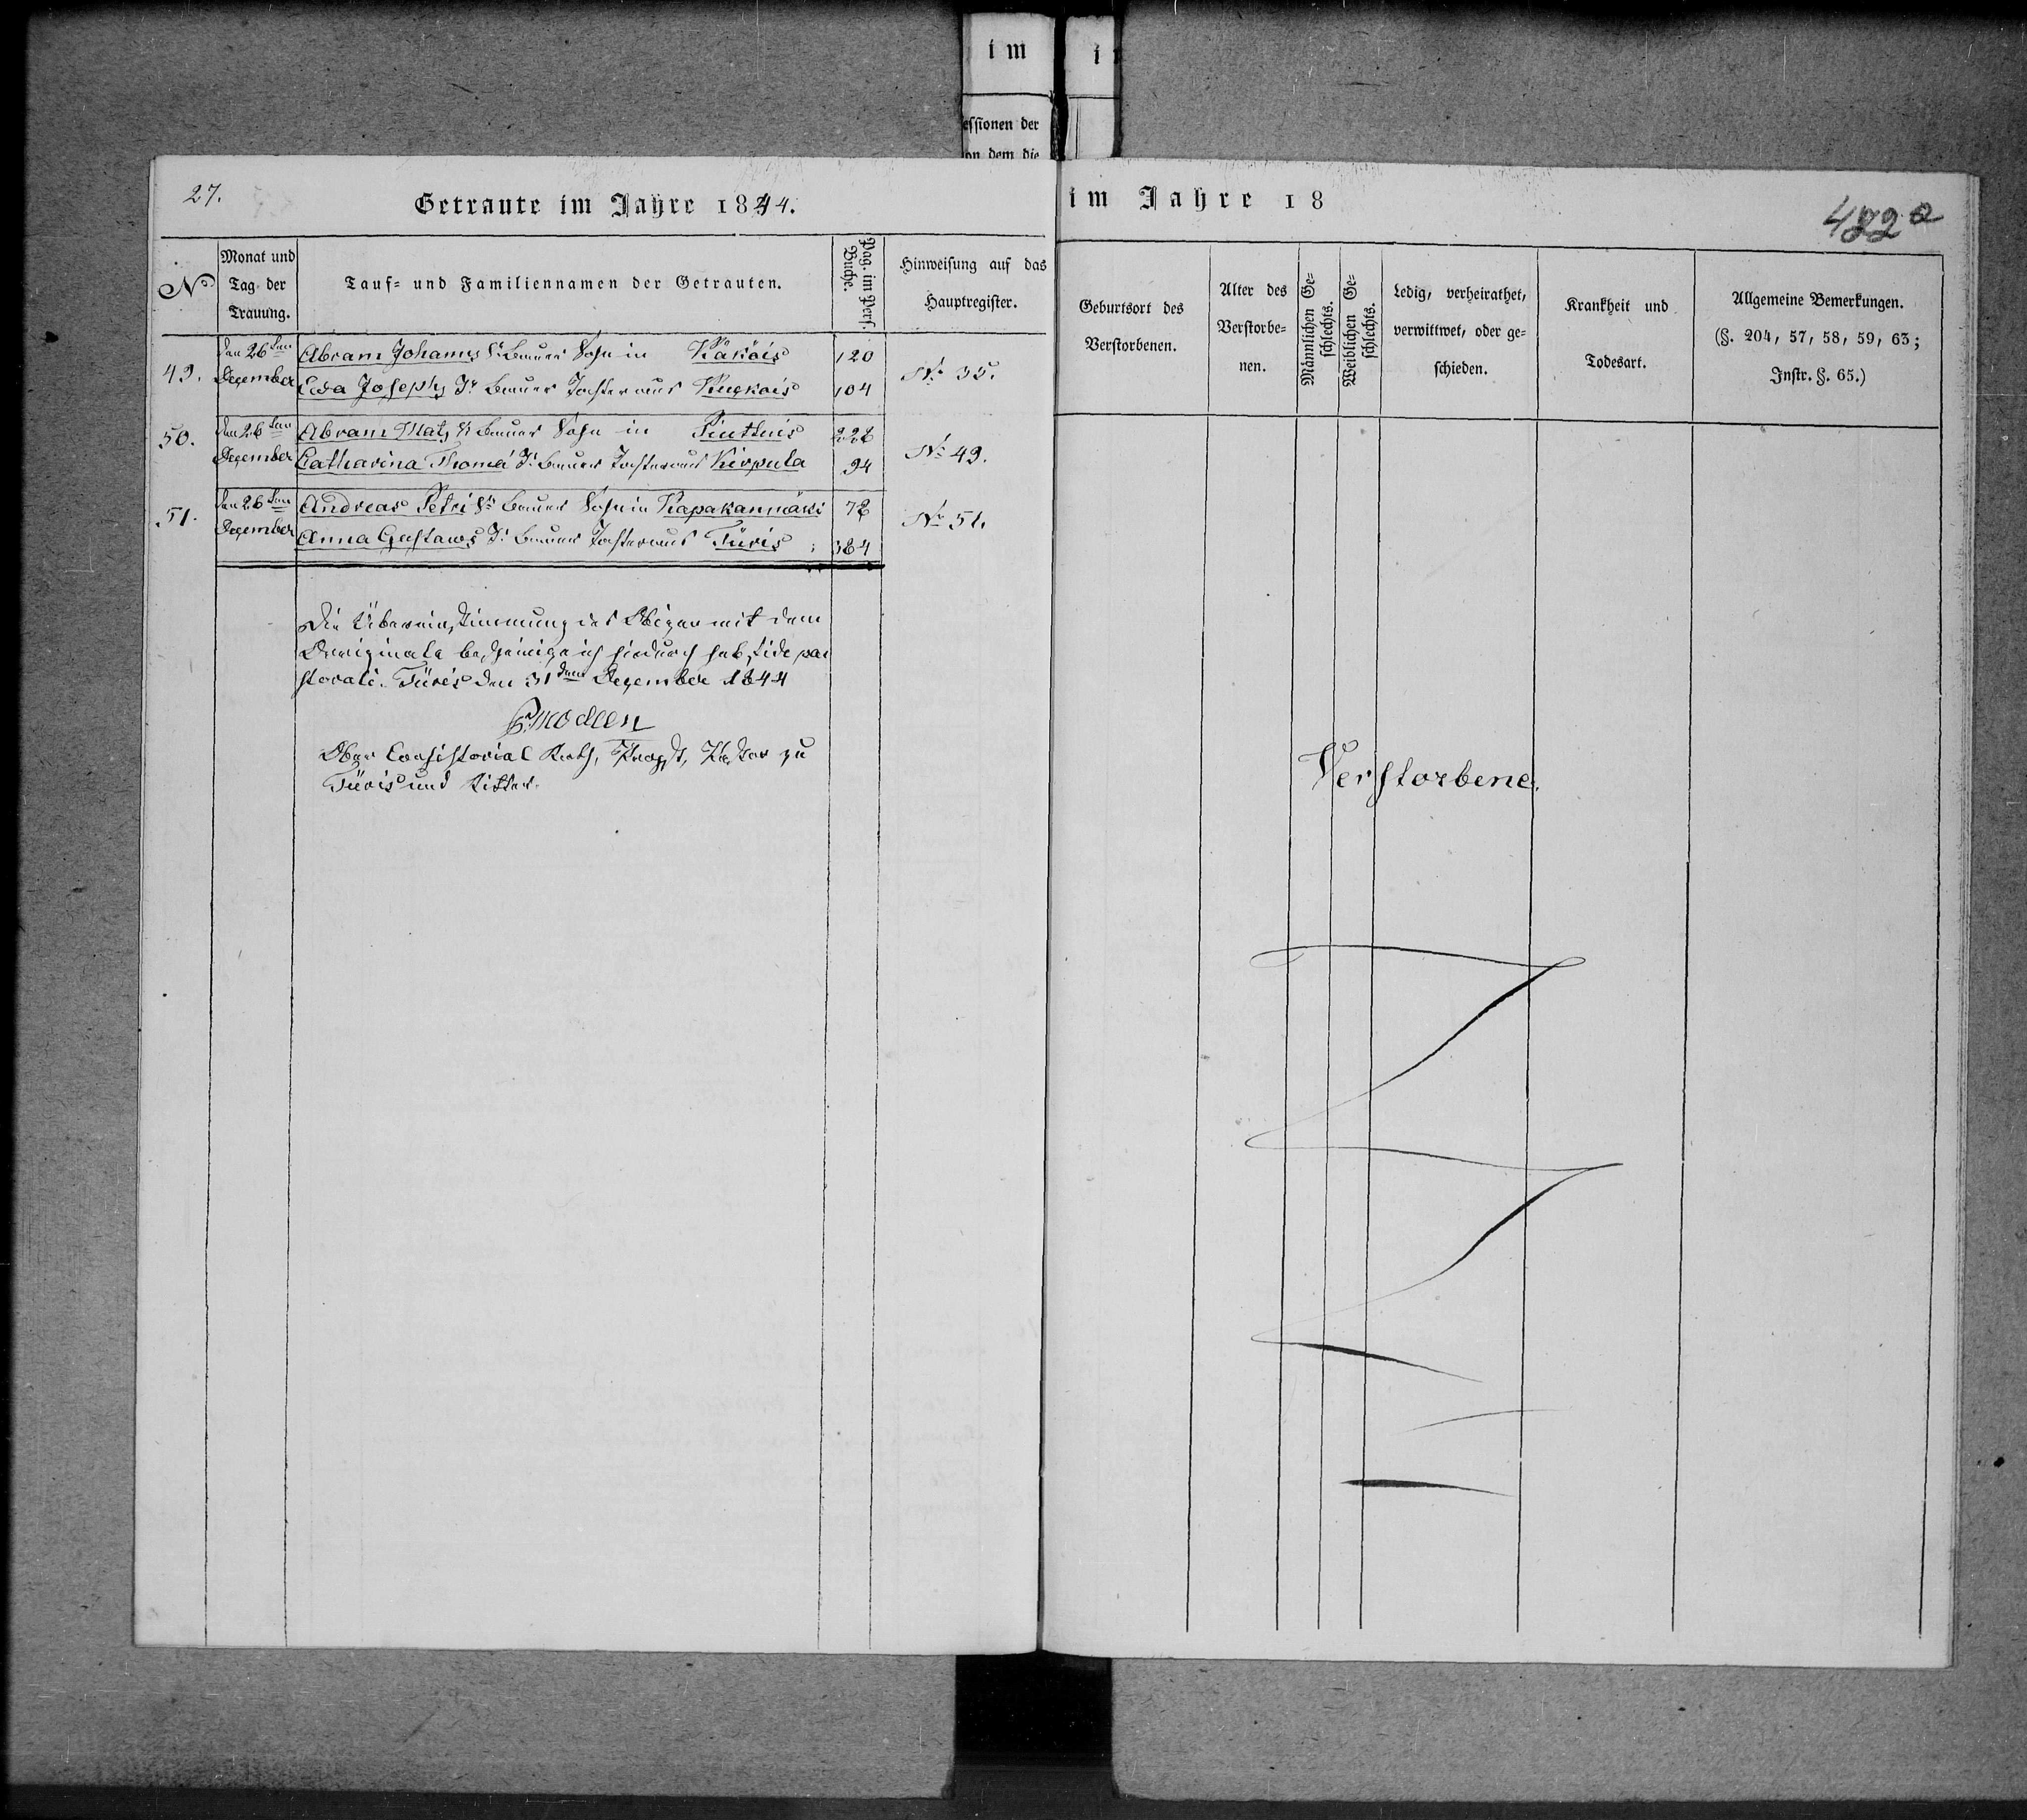 im
i
essionen der
on dem die
27.
Getraute im Jahre 1844.
No
Monat und
Tag der
Trauung.
Tauf- und Familiennamen der Getrauten.
Pag. im Pers.
Buche.
Hinweisung auf das
Hauptregister.
49.
den 26ten
December
Abram Johanns S. Bauer Sohn in Käköis
120
Ewa Josephs T. Bauer Tochter aus
104
No 35.
50.
den 26ten
December
Abram Mats S. Bauer Sohn in
228
Catharina Thomä T. Bauer Tochter aus Kirpula
94
No 49.
51.
den 26ten
December
Andreas Petri S. Bauer Sohn in Kapakanmäki
72
Anna Gustaws T. Bauer Tochter aus Türis
384
No 51.
Die Übereinstimmung des Obigen mit dem
Originale bescheinige ich hiedurch sub fide pa
storali. Türis den 31ten December 1844
Ober Consistorial Rath, Propst, Pastor zu
Türis und Ritter.
im Jahre 18
422a
Geburtsort des
Verstorbenen.
Alter des
Verstorbe-
nen.
Männlichen Ge-
schlechts.
Weiblichen Ge-
schlechts.
Ledig, verheirathet,
verwittwet, oder ge-
schieden.
Krankheit und
Todesart.
Allgemeine Bemerkungen.
(§. 204, 57, 58, 59, 63;
Instr. §. 65.)
Verstorbene.